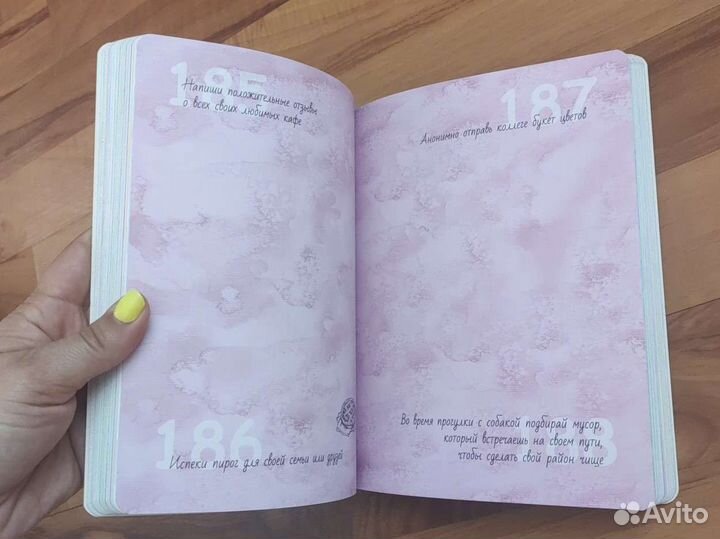 185
Напиши положительные отзывы
о всех своих любимых кафе
186
Испеки пирог для своей семьи или друзей
187
Анонимно отправь коллеге букет цветов
188
Во время прогулки с собакой подбирай мусор,
который встречаешь на своем пути,
чтобы сделать свой район чище
Avito